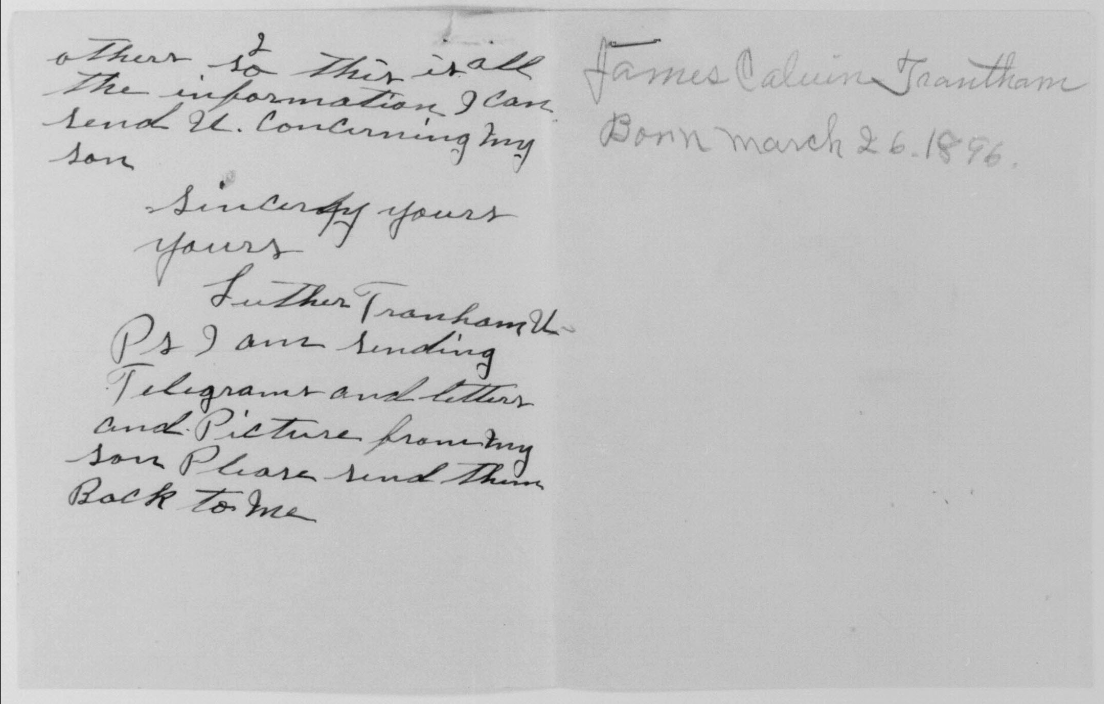 2
others so this is all
the information I can
send U. concerning my
son
sincerly yours
yours
Luther Tranham
Ps I am sending
Telegrams and letters
and Picture from my
son Please send them
Back to me
James Calvin Trantham
Born march 26. 1896.